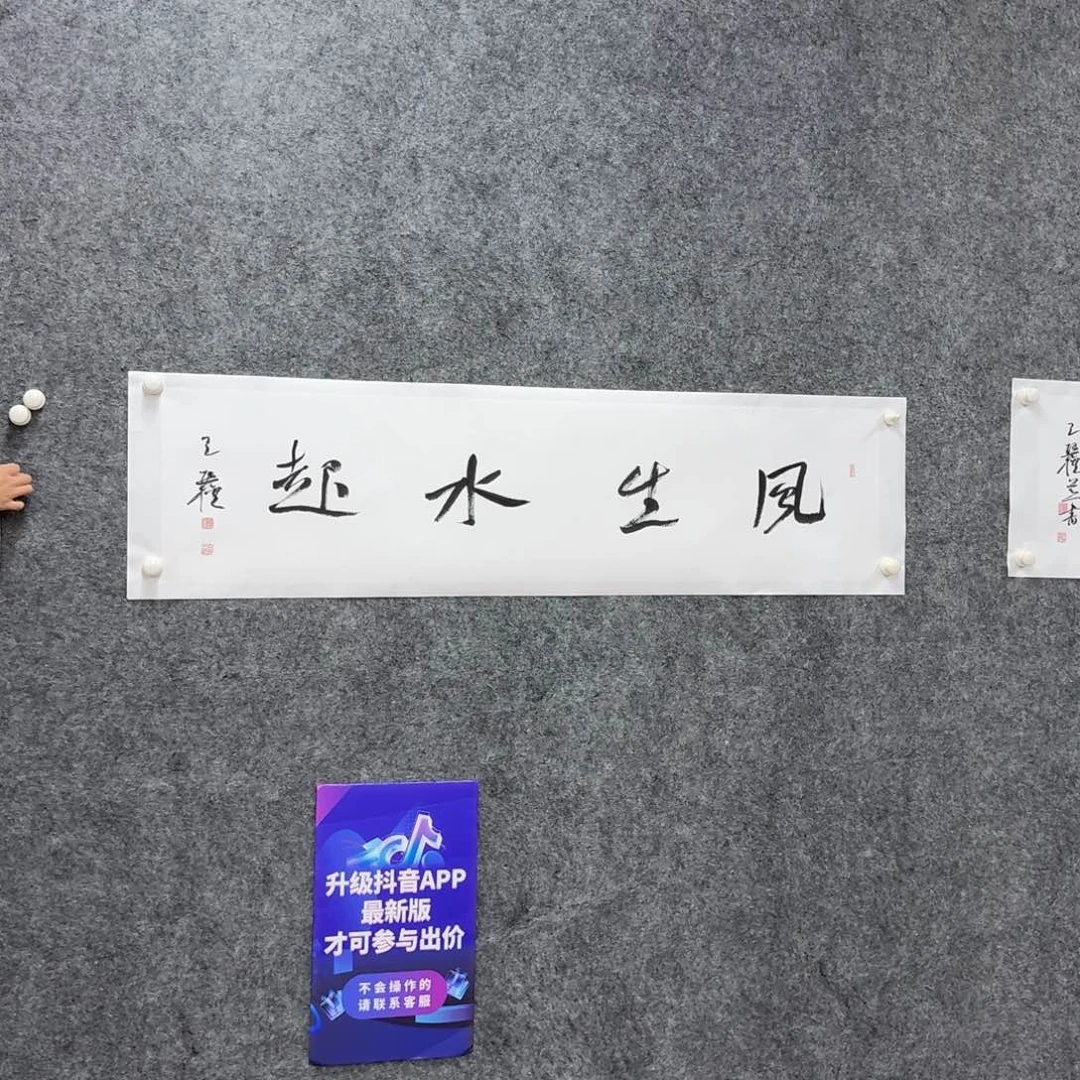 风生水起
升级抖音APP
最新版
才可参与出价
不会操作的
请联系客服